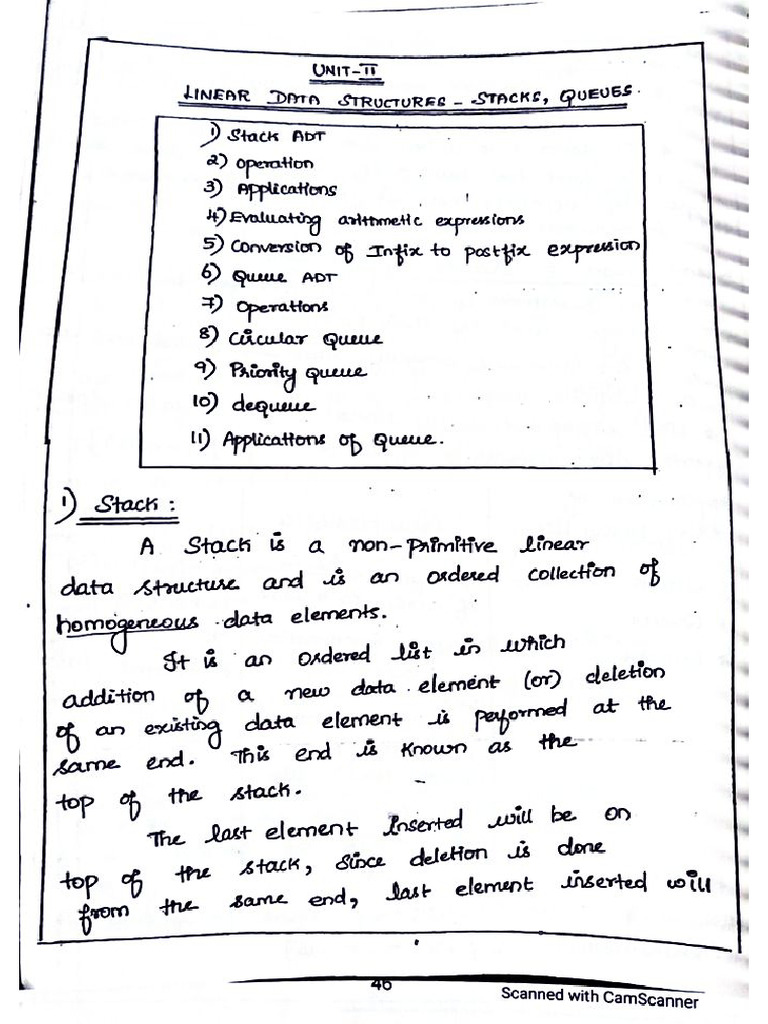 UNIT-II
LINEAR DATA STRUCTURES - STACKS, QUEUES.
1) Stack ADT
2) Operation
3) Applications
4) Evaluating arithmetic expressions
5) Conversion of Infix to postfix expression
6) Queue ADT
7) Operations
8) Circular Queue
9) Priority Queue
10) deQueue
11) Applications of Queue.
1) Stack :
A Stack is a non-primitive linear
data structure and is an ordered collection of
homogeneous data elements.
It is an ordered list in which
addition of a new data element (or) deletion
of an existing data element is performed at the
same end. This end is known as the
top of the stack.
The last element inserted will be on
top of the stack, since deletion is done
from the same end, last element inserted will
46
Scanned with CamScanner